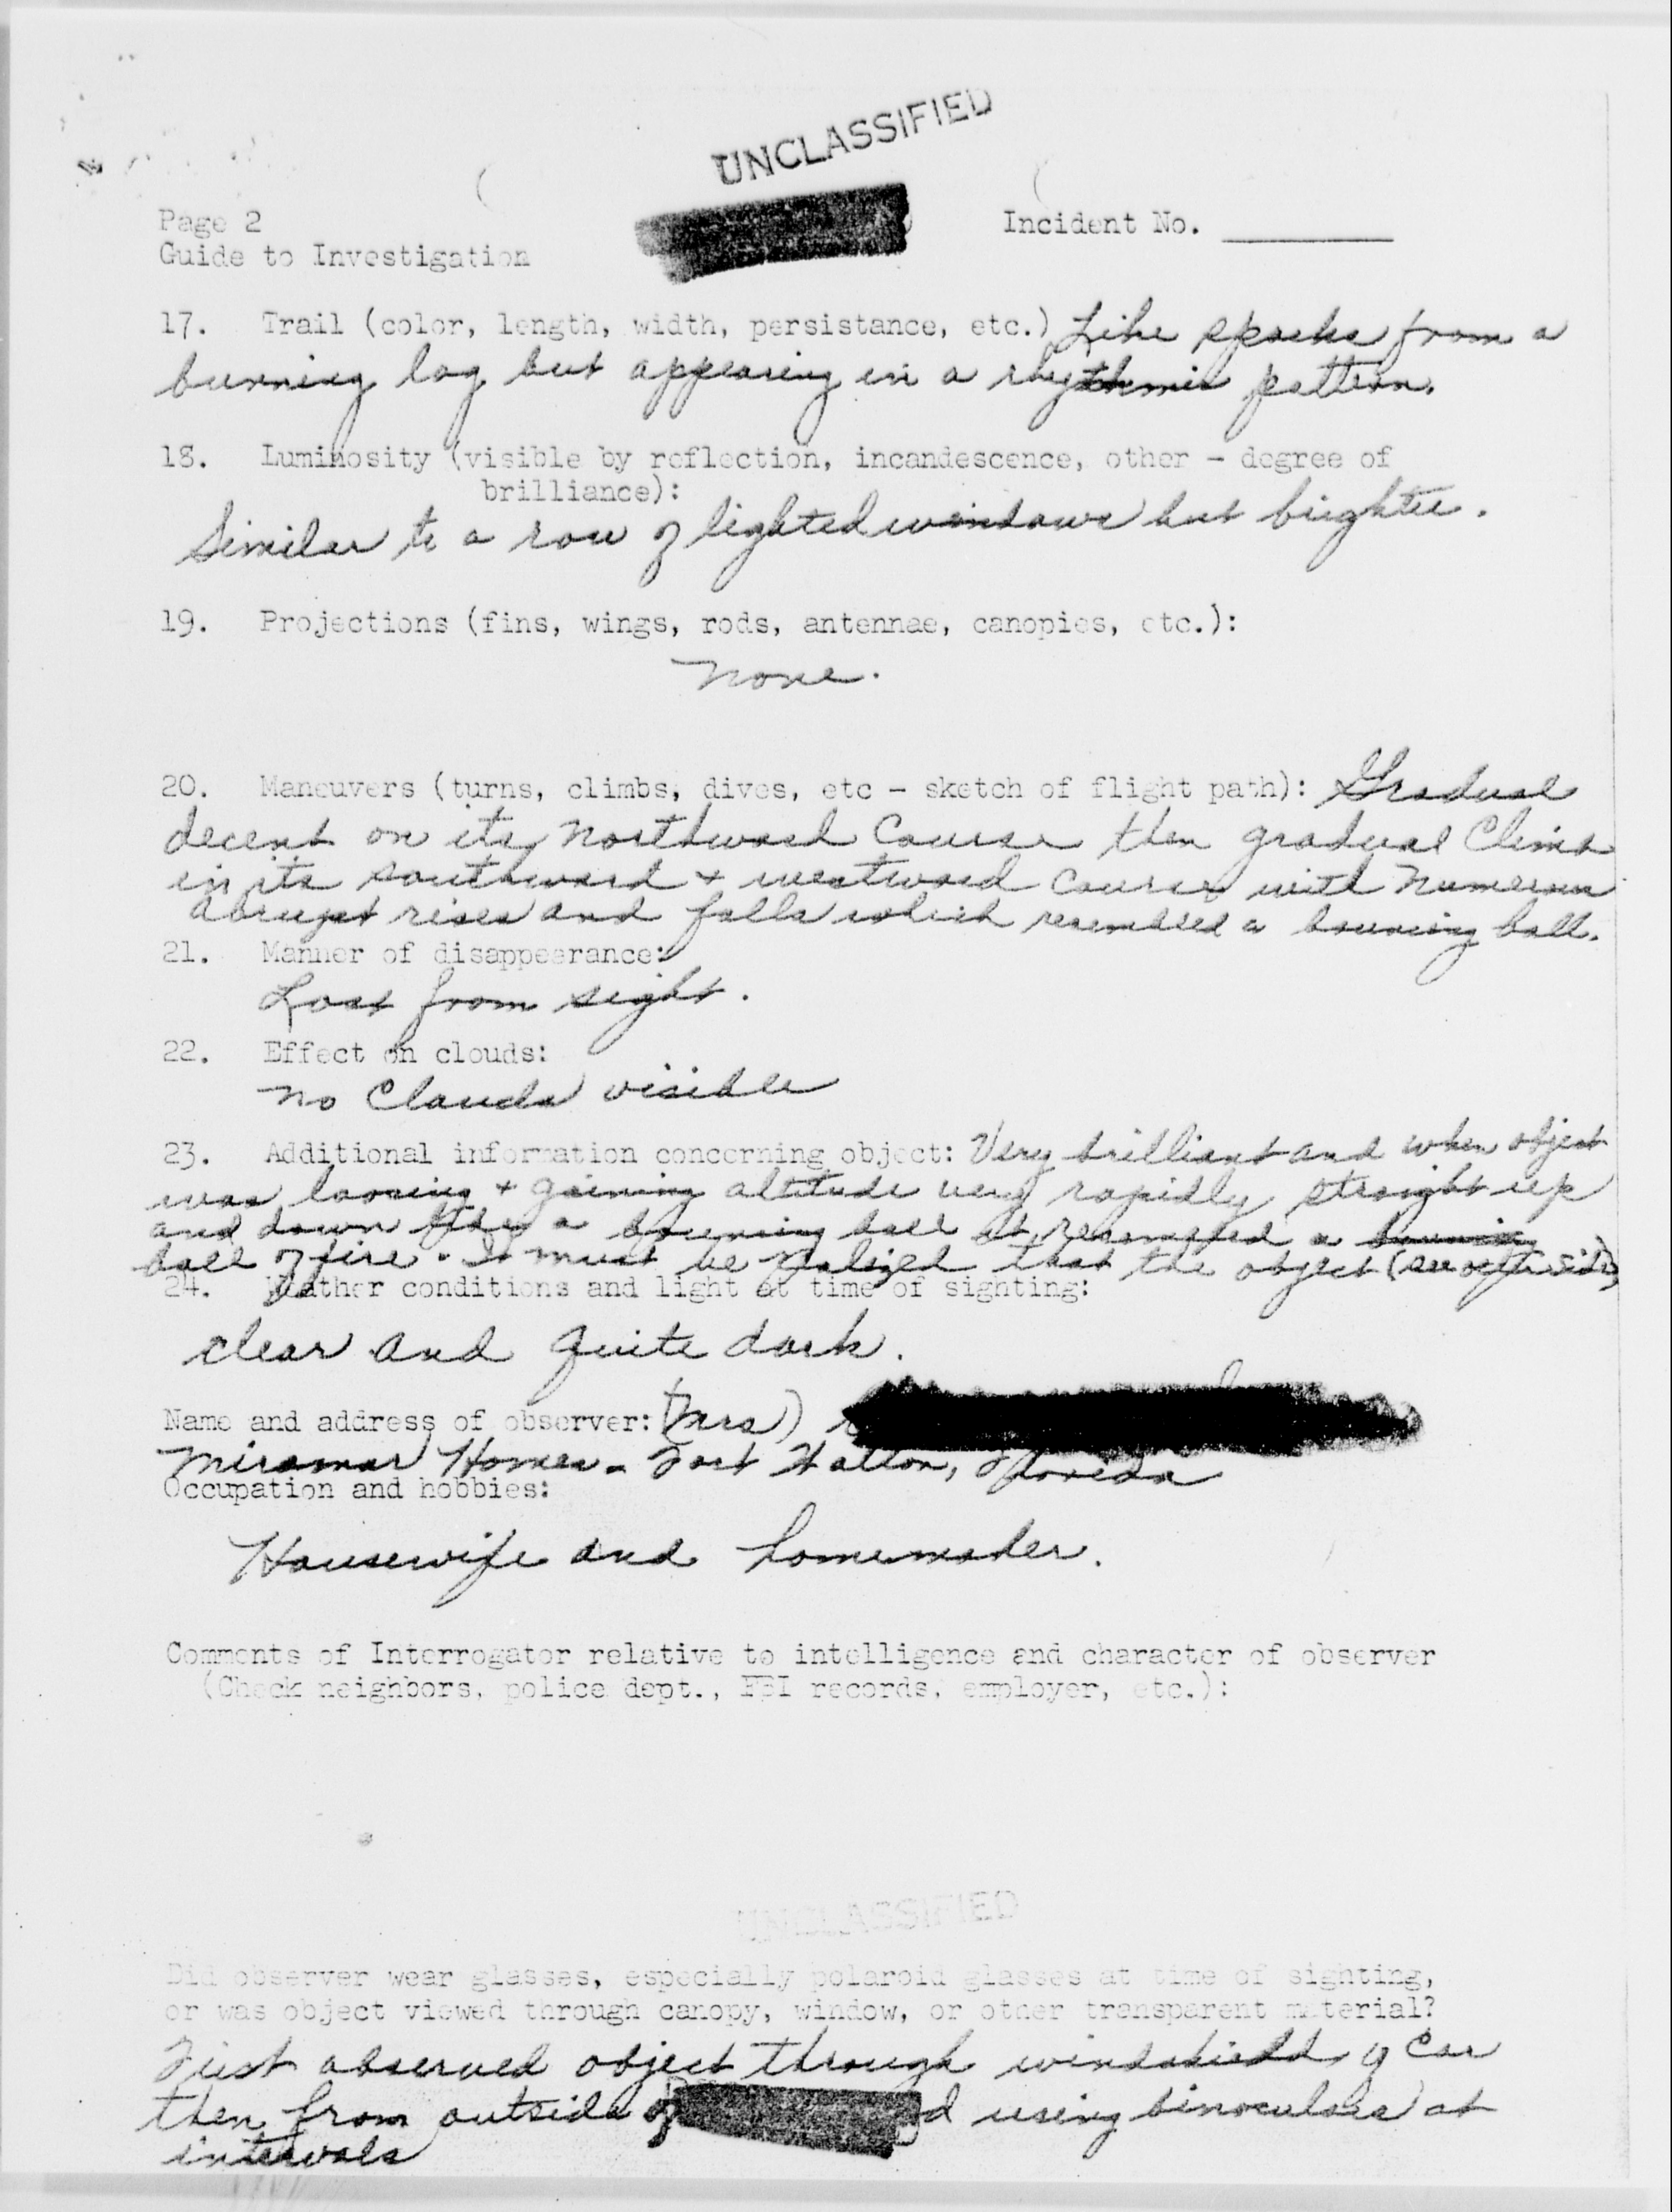 UNCLASSIFIED
Page 2
Incident No.
Guide to Investigation
17. Trail (color, length, width, persistance, etc.) Like sparks from a
burning log but appearing in a rhythmic pattern.
18. Luminosity (visible by reflection, incandescence, other - degree of
brilliance):
Similar to a row of lighted windows but brighter.
19. Projections (fins, wings, rods, antennae, canopies, etc.):
None.
20. Maneuvers (turns, climbs, dives, etc - sketch of flight path): Gradual
decent on its Northward Course then gradual Climb
in its southward & westward Course with numerous
abrupt rises and falls which resembled a bouncing ball.
21. Manner of disappearance:
Lost from sight.
22. Effect on clouds:
No Clouds visible
23. Additional information concerning object: Very brilliant and when object
was loosing & gaining altitude very rapidly straight up
and down like a bouncing ball it resembled a
ball of fire. It must be realized that the object (see other side)
24. Weather conditions and light at time of sighting:
clear and quite dark.
Name and address of observer: (Mrs)
Miramar Homes - Fort Walton, Florida
Occupation and hobbies:
Housewife and homemaker.
Comments of Interrogator relative to intelligence and character of observer
(Check neighbors, police dept., FBI records, employer, etc.):
UNCLASSIFIED
Did observer wear glasses, especially polaroid glasses at time of sighting,
or was object viewed through canopy, window, or other transparent material?
First observed object through windshield of Car
then from outside of using binoculars at
intervals